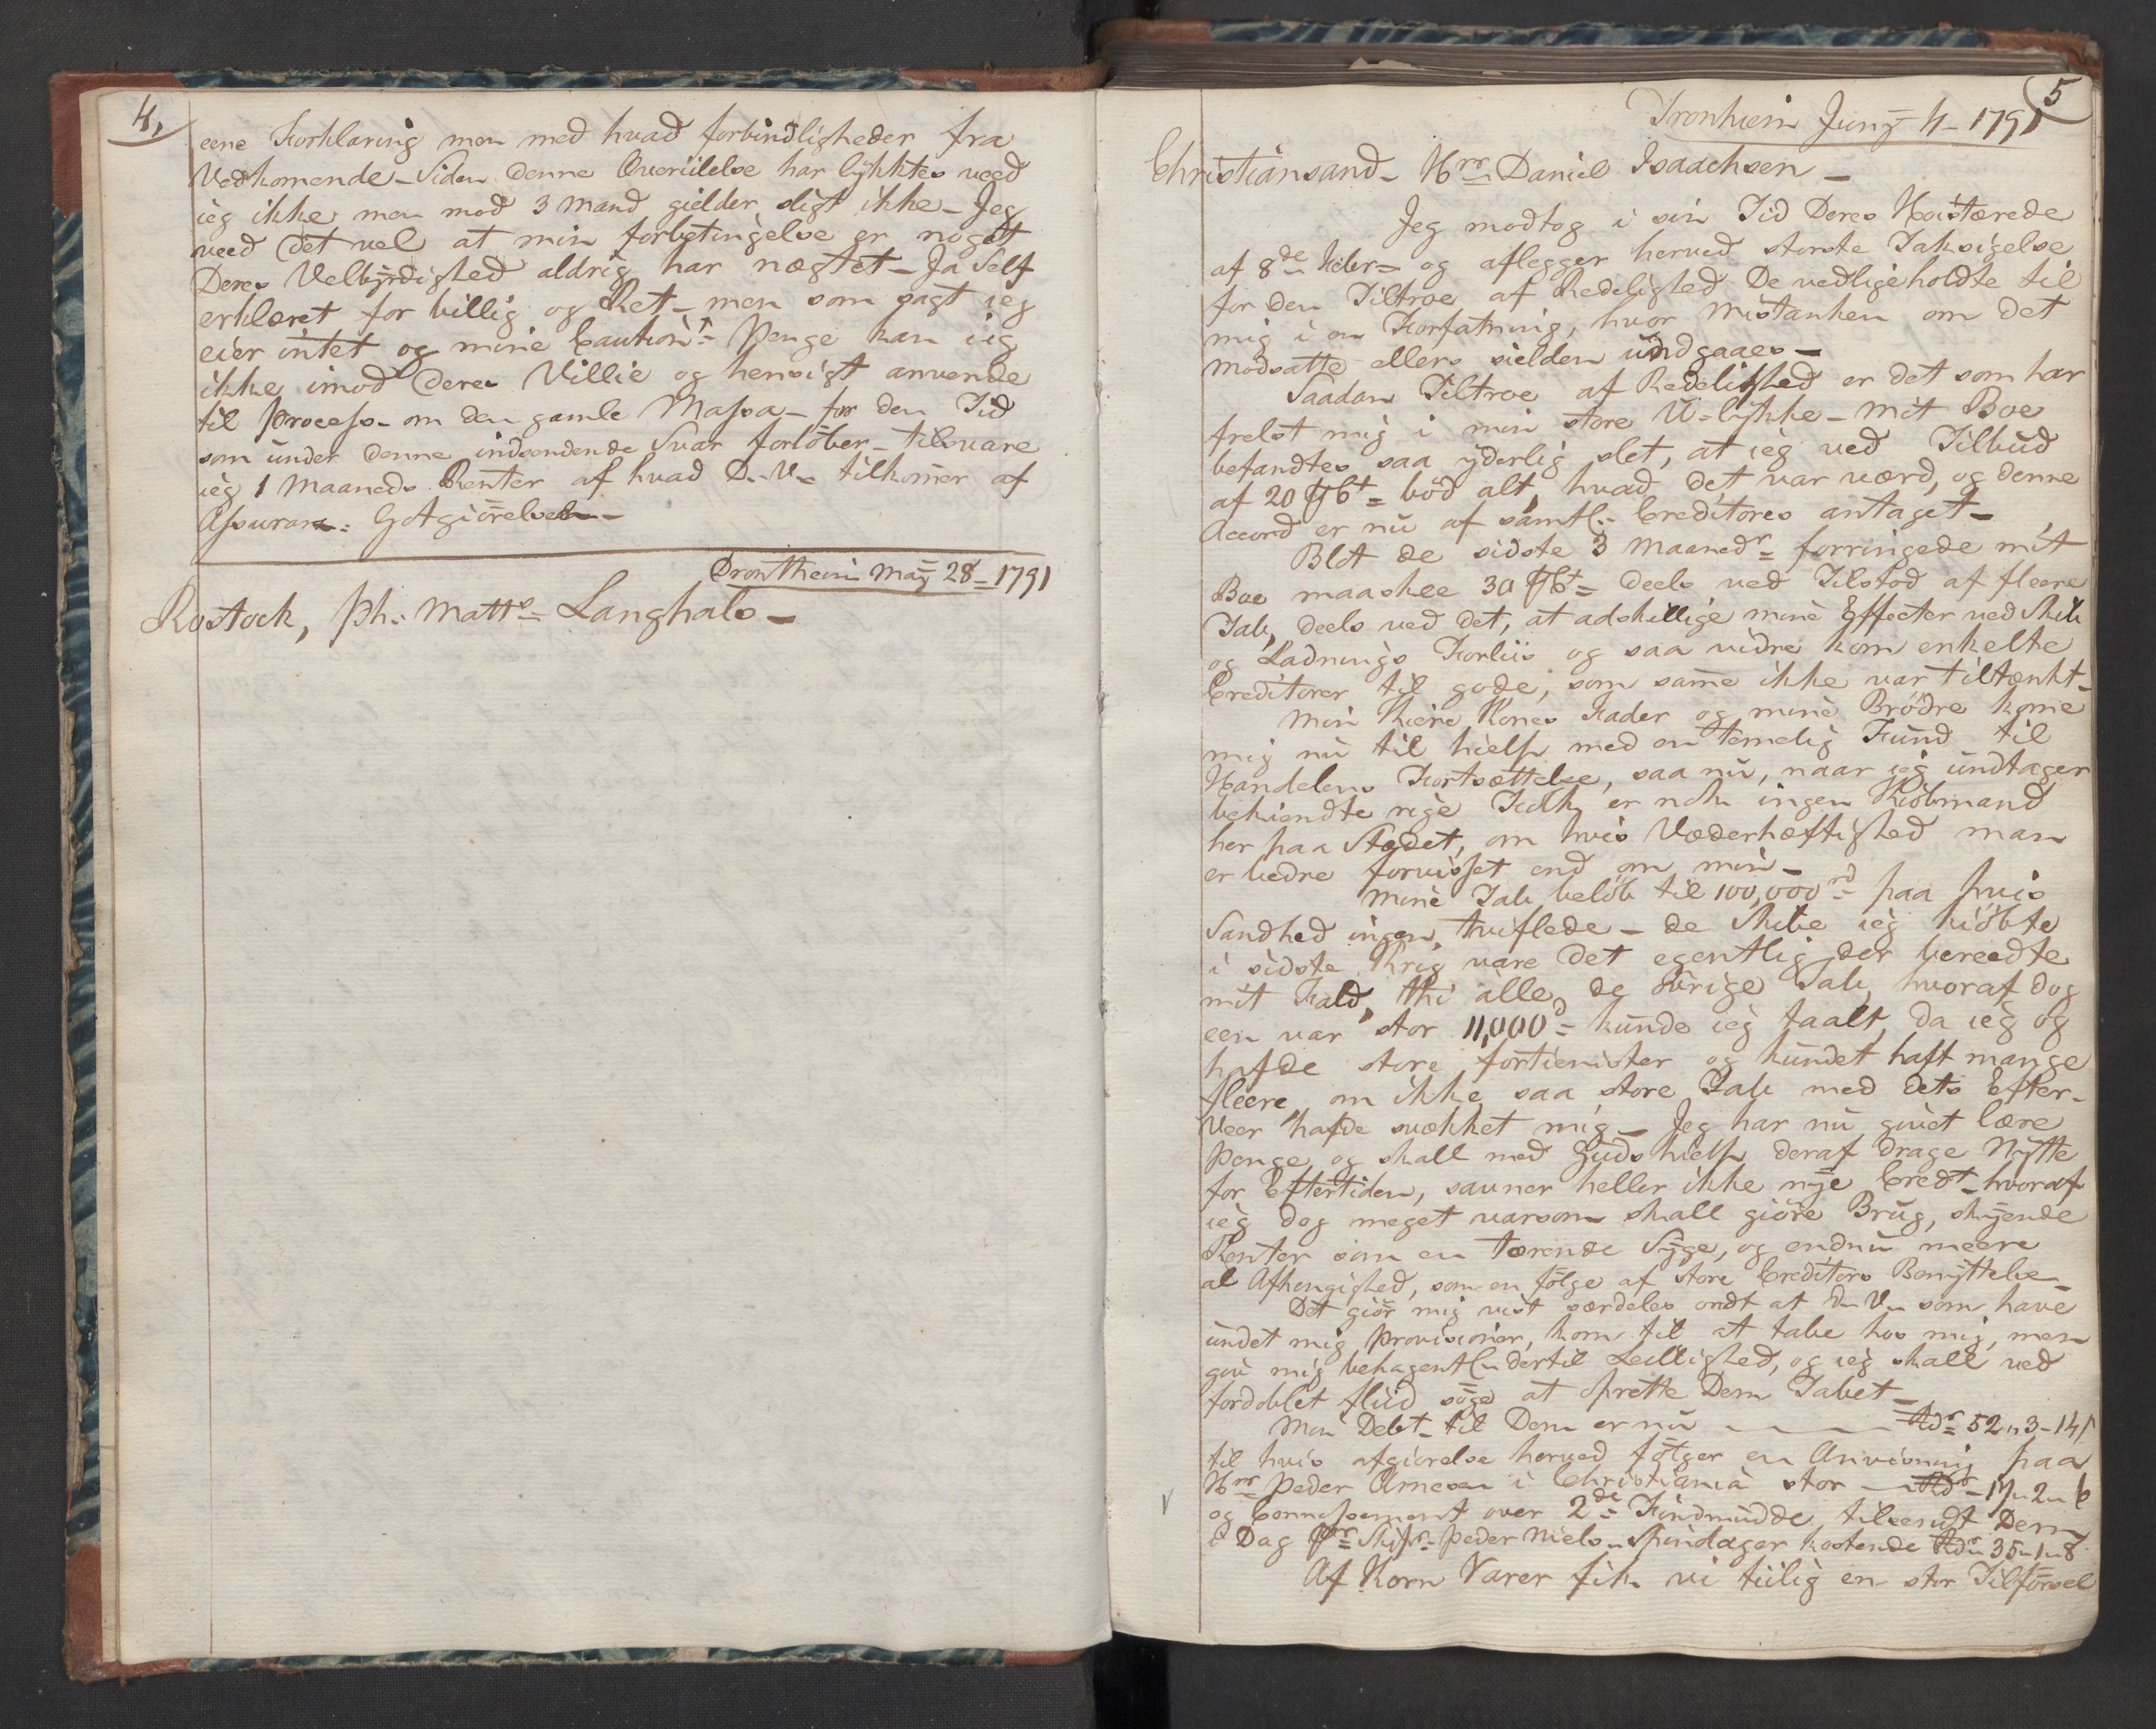 4,
eene Forklaring men med hvad forbindligheder fra
Vedkomende - Siden denne Overiilelse har lykktes veed
ieg ikke men mod 3 Mand gielder sligt ikke - Jeg
veed det vel at min forbetingelse er noget
Deres Velbyrdighed aldrig har nægtet - Ja Self
erklæret for billig og Ret - men som sagt ieg
eier intet og mine Cautions Penge kan ieg
ikke imod Deres Villie og hensigt anvende
til Process - om den gamle Massa - for den Tid
som under denne indsendende Svar forløber - tilsvare
ieg 1 Maaneds Renter af hvad D. V. tilkomer af
Assuran: Gotgiørelsen -
Drontheim May 28 - 1791
Rostock, Ph: Matts Langhals -
5
Tronhiem Juny 4 - 1791
Christiansand - Hrr Daniel Isaachsen -
Jeg modtog i sin Tid Deres Høistærede
af 8de Feber og aflegger herved største Taksigelse
for den Tiltroe af Redelighed De vedligeholdte til
mig i en Forfatning, hvor Mistanken om det
modsatte ellers sielden undgaaes -
Saadan Tiltroe af Redelighed er det som har
frelst mig i min store U-lykke - Mit Boe
befandtes saa yderlig slet, at ieg ved Tilbud
af 20 PCt bød alt, hvad det var værd, og denne
Accord er nu af samtl: Creditores antaget -
Blot de sidste 3 Maaneder forringede mit
Boe maaskee 30 PCt deels ved Tilstød af fleere
Tab, deels ved det, at adskillige mine Effecter ved Skib
og Ladnings Forliis og saa vidre kom enkelte
Creditorer til gode, som same ikke var tiltænkt -
Min Kiere Kones Fader og mine Brødre kome
mig nu til hielp med en temelig Fund til
Handelens Fortsættelse, saa nu, naar ieg undtager
bekiendte rige Folk er nok ingen Kiøbmand
her paa Stedet, om hvis Væderhæftighed man
er bedre forvisset end om min -
Mine Tab beløb til 100,000 rd paa hvis
Sandhed ingen tviflede - de Skibe ieg kiøbte
i sidste Krig vare det egentlig der bereedte
mit Fald, thi alle de øvrige Tab, hvoraf dog
een var stor 11,000 d kunde ieg taalt, da ieg og
hafde store fortienister og kundet haft mange
fleere om ikke saa store Tab med dets Efter-
Veer hafde svækket mig - Jeg har nu givet lære
Penge og skall med Guds hielp deraf drage Nytte
for Eftertiden, savner heller ikke nye Credt - hvoraf
ieg dog meget varsom skall giøre Brug, skyende
Renter som en tærende Syge, og endnu meere
al Afhengighed, som en følge af store Creditors Benyttelse -
Det giør mig vist særdeles ondt at D. V. som have
undet mig Provisioner, kom til at tabe hos mig, men
giv mig behagentl. dertil Leilighed, og ieg skall ved
fordoblet fliid søge at oprette Dem Tabet -
Min Debt til Dem er nu - - - - Rdr 52 „ 3 - 14 s
til hvis afgiørelse herved følger en Anvisning paa
Hrr Peder Arnesen i Christiania stor - Rdr - 17 „ 2 „ 6
og Connossement over 2de Findmudde tilsendt Dem
i Dag Pr Skipr Peder Niels. Spindager kostende Rdr 35 „ 1 „ 8
Af Korn Varer fik vi tiilig en stor Tilførsel